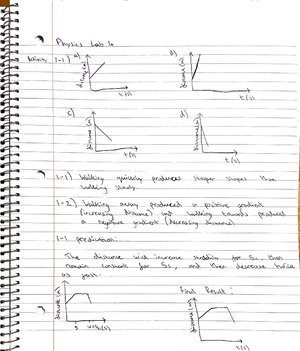 Physics Lab 4
1-1) a) b)
distance (m) t(s) distance (m) t(s)
c) d)
distance (m) t(s) distance (m) t(s)
1-1) Walking quickly produced steeper slopes than
walking slowly.
1-2) Walking away produced a positive gradient
(increasing distance) and walking towards produced
a negative gradient (decreasing distance)
1-1 prediction:
The distance will increase steadily for 5s, then
remain constant for 5s, and then decrease twice
as fast.
Final Result:
distance (m) distance (m)
5 t(s)
t(s)